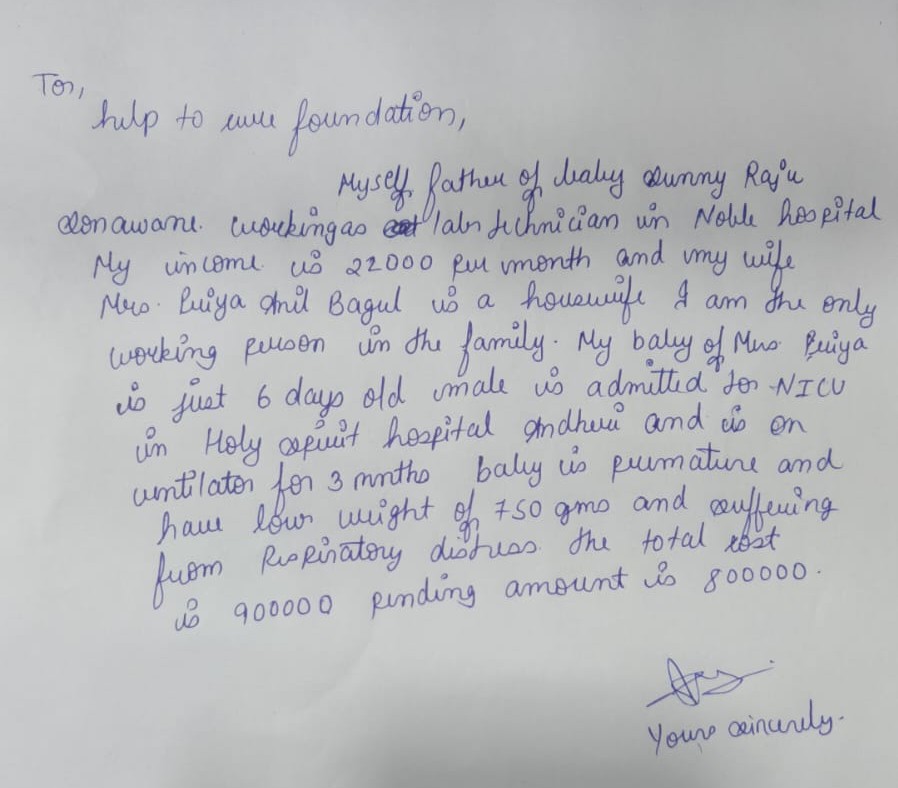 To,
help to cure foundation,
Myself father of baby Sunny Raju
Sonawane. working as lab technician in Noble hospital
My income is 22000 per month and my wife
Mrs. Priya Anil Bagul is a housewife I am the only
working person in the family. My baby of Mrs Priya
is just 6 days old male is admitted for NICU
in Holy spirit hospital Andheri and is on
ventilator for 3 mnths baby is premature and
have low weight of 750 gms and suffering
from Respiratory distress. the total cost
is 900000 pending amount is 800000.
Yours sincerely.